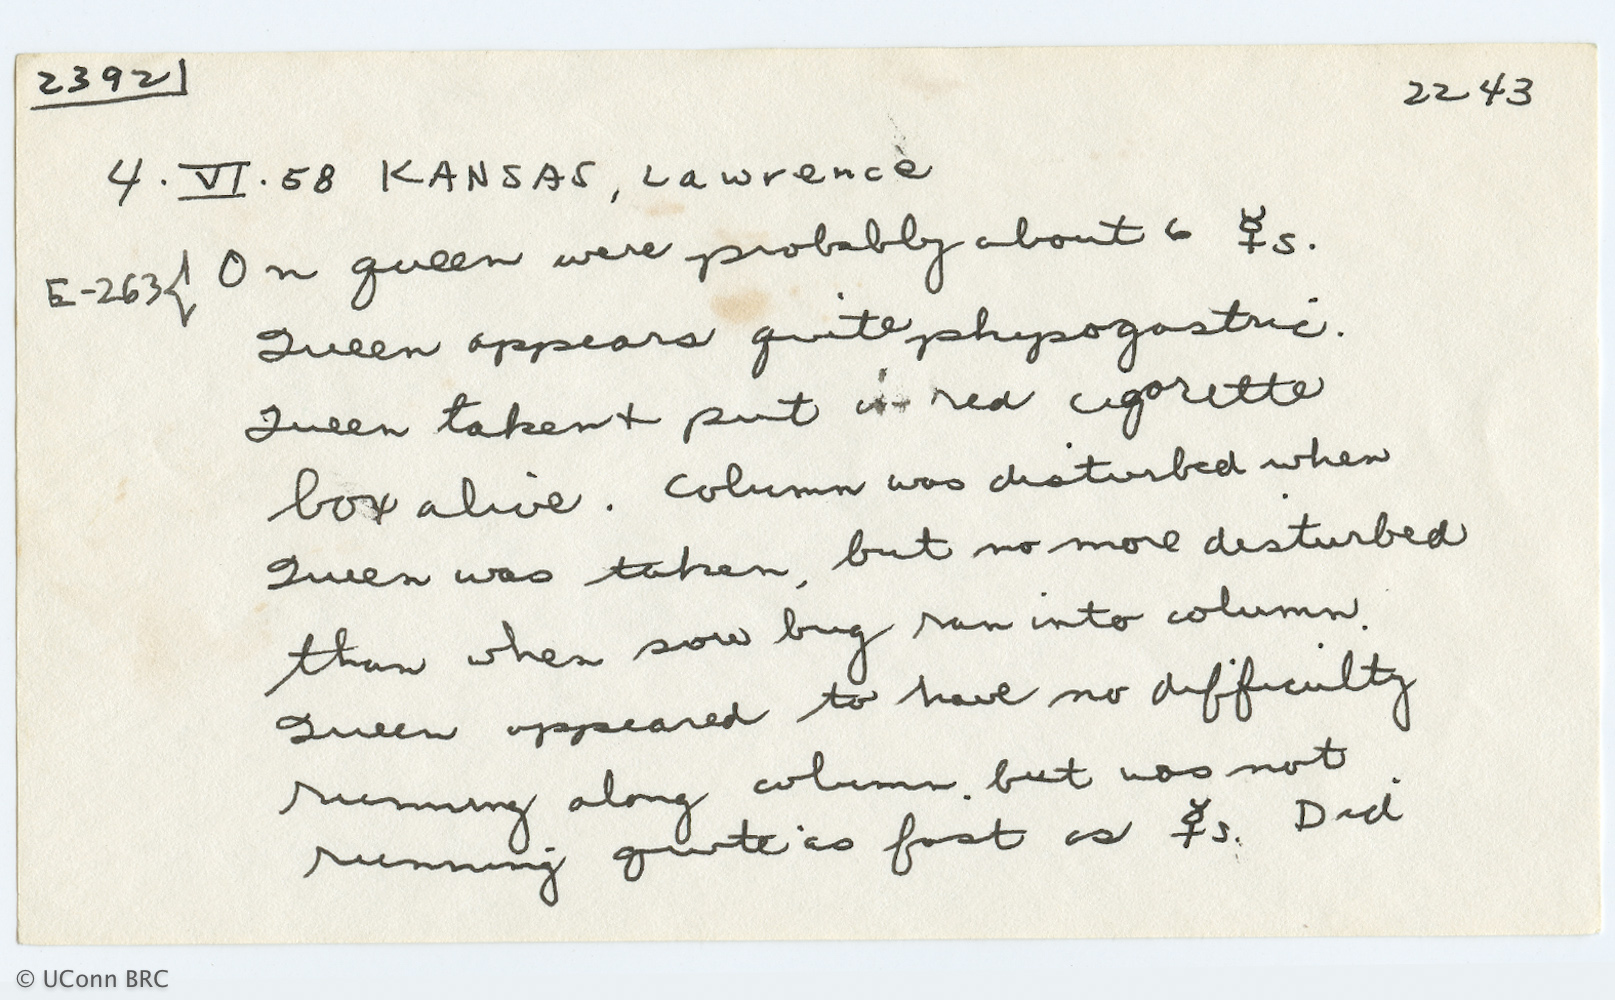 2392
2243
4.VI.58 KANSAS, Lawrence
E-263{ On queen were probably about 6 ☿s.
Queen appears quite physogastric.
Queen taken + put in red cigarette
box alive. Column was disturbed when
Queen was taken, but no more disturbed
than when sow bug ran into column.
Queen appeared to have no difficulty
running along column, but was not
running quite as fast as ☿s. Did
© UConn BRC